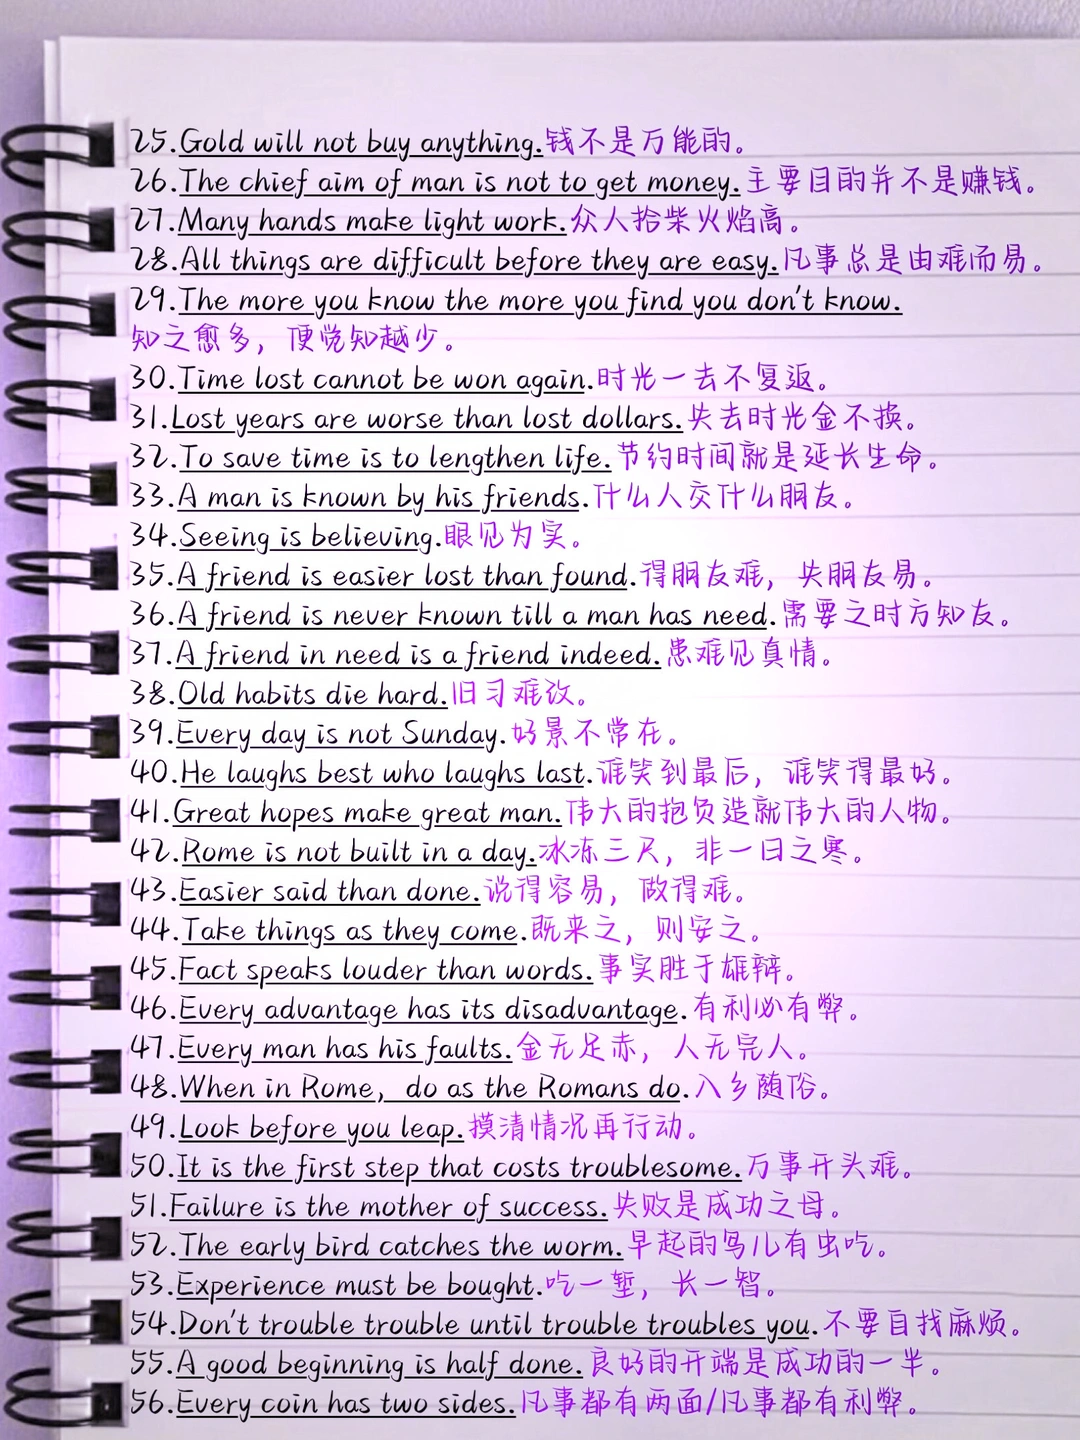 25.Gold will not buy anything.钱不是万能的。
26.The chief aim of man is not to get money.主要目的并不是赚钱。
27.Many hands make light work.众人拾柴火焰高。
28.All things are difficult before they are easy.凡事总是由难而易。
29.The more you know the more you find you don't know.
知之愈多，便觉知越少。
30.Time lost cannot be won again.时光一去不复返。
31.Lost years are worse than lost dollars.失去时光金不换。
32.To save time is to lengthen life.节约时间就是延长生命。
33.A man is known by his friends.什么人交什么朋友。
34.Seeing is believing.眼见为实。
35.A friend is easier lost than found.得朋友难，失朋友易。
36.A friend is never known till a man has need.需要之时方知友。
37.A friend in need is a friend indeed.患难见真情。
38.Old habits die hard.旧习难改。
39.Every day is not Sunday.好景不常在。
40.He laughs best who laughs last.谁笑到最后，谁笑得最好。
41.Great hopes make great man.伟大的抱负造就伟大的人物。
42.Rome is not built in a day.冰冻三尺，非一日之寒。
43.Easier said than done.说得容易，做得难。
44.Take things as they come.既来之，则安之。
45.Fact speaks louder than words.事实胜于雄辩。
46.Every advantage has its disadvantage.有利必有弊。
47.Every man has his faults.金无足赤，人无完人。
48.When in Rome, do as the Romans do.入乡随俗。
49.Look before you leap.摸清情况再行动。
50.It is the first step that costs troublesome.万事开头难。
51.Failure is the mother of success.失败是成功之母。
52.The early bird catches the worm.早起的鸟儿有虫吃。
53.Experience must be bought.吃一堑，长一智。
54.Don't trouble trouble until trouble troubles you.不要自找麻烦。
55.A good beginning is half done.良好的开端是成功的一半。
56.Every coin has two sides.凡事都有两面/凡事都有利弊。